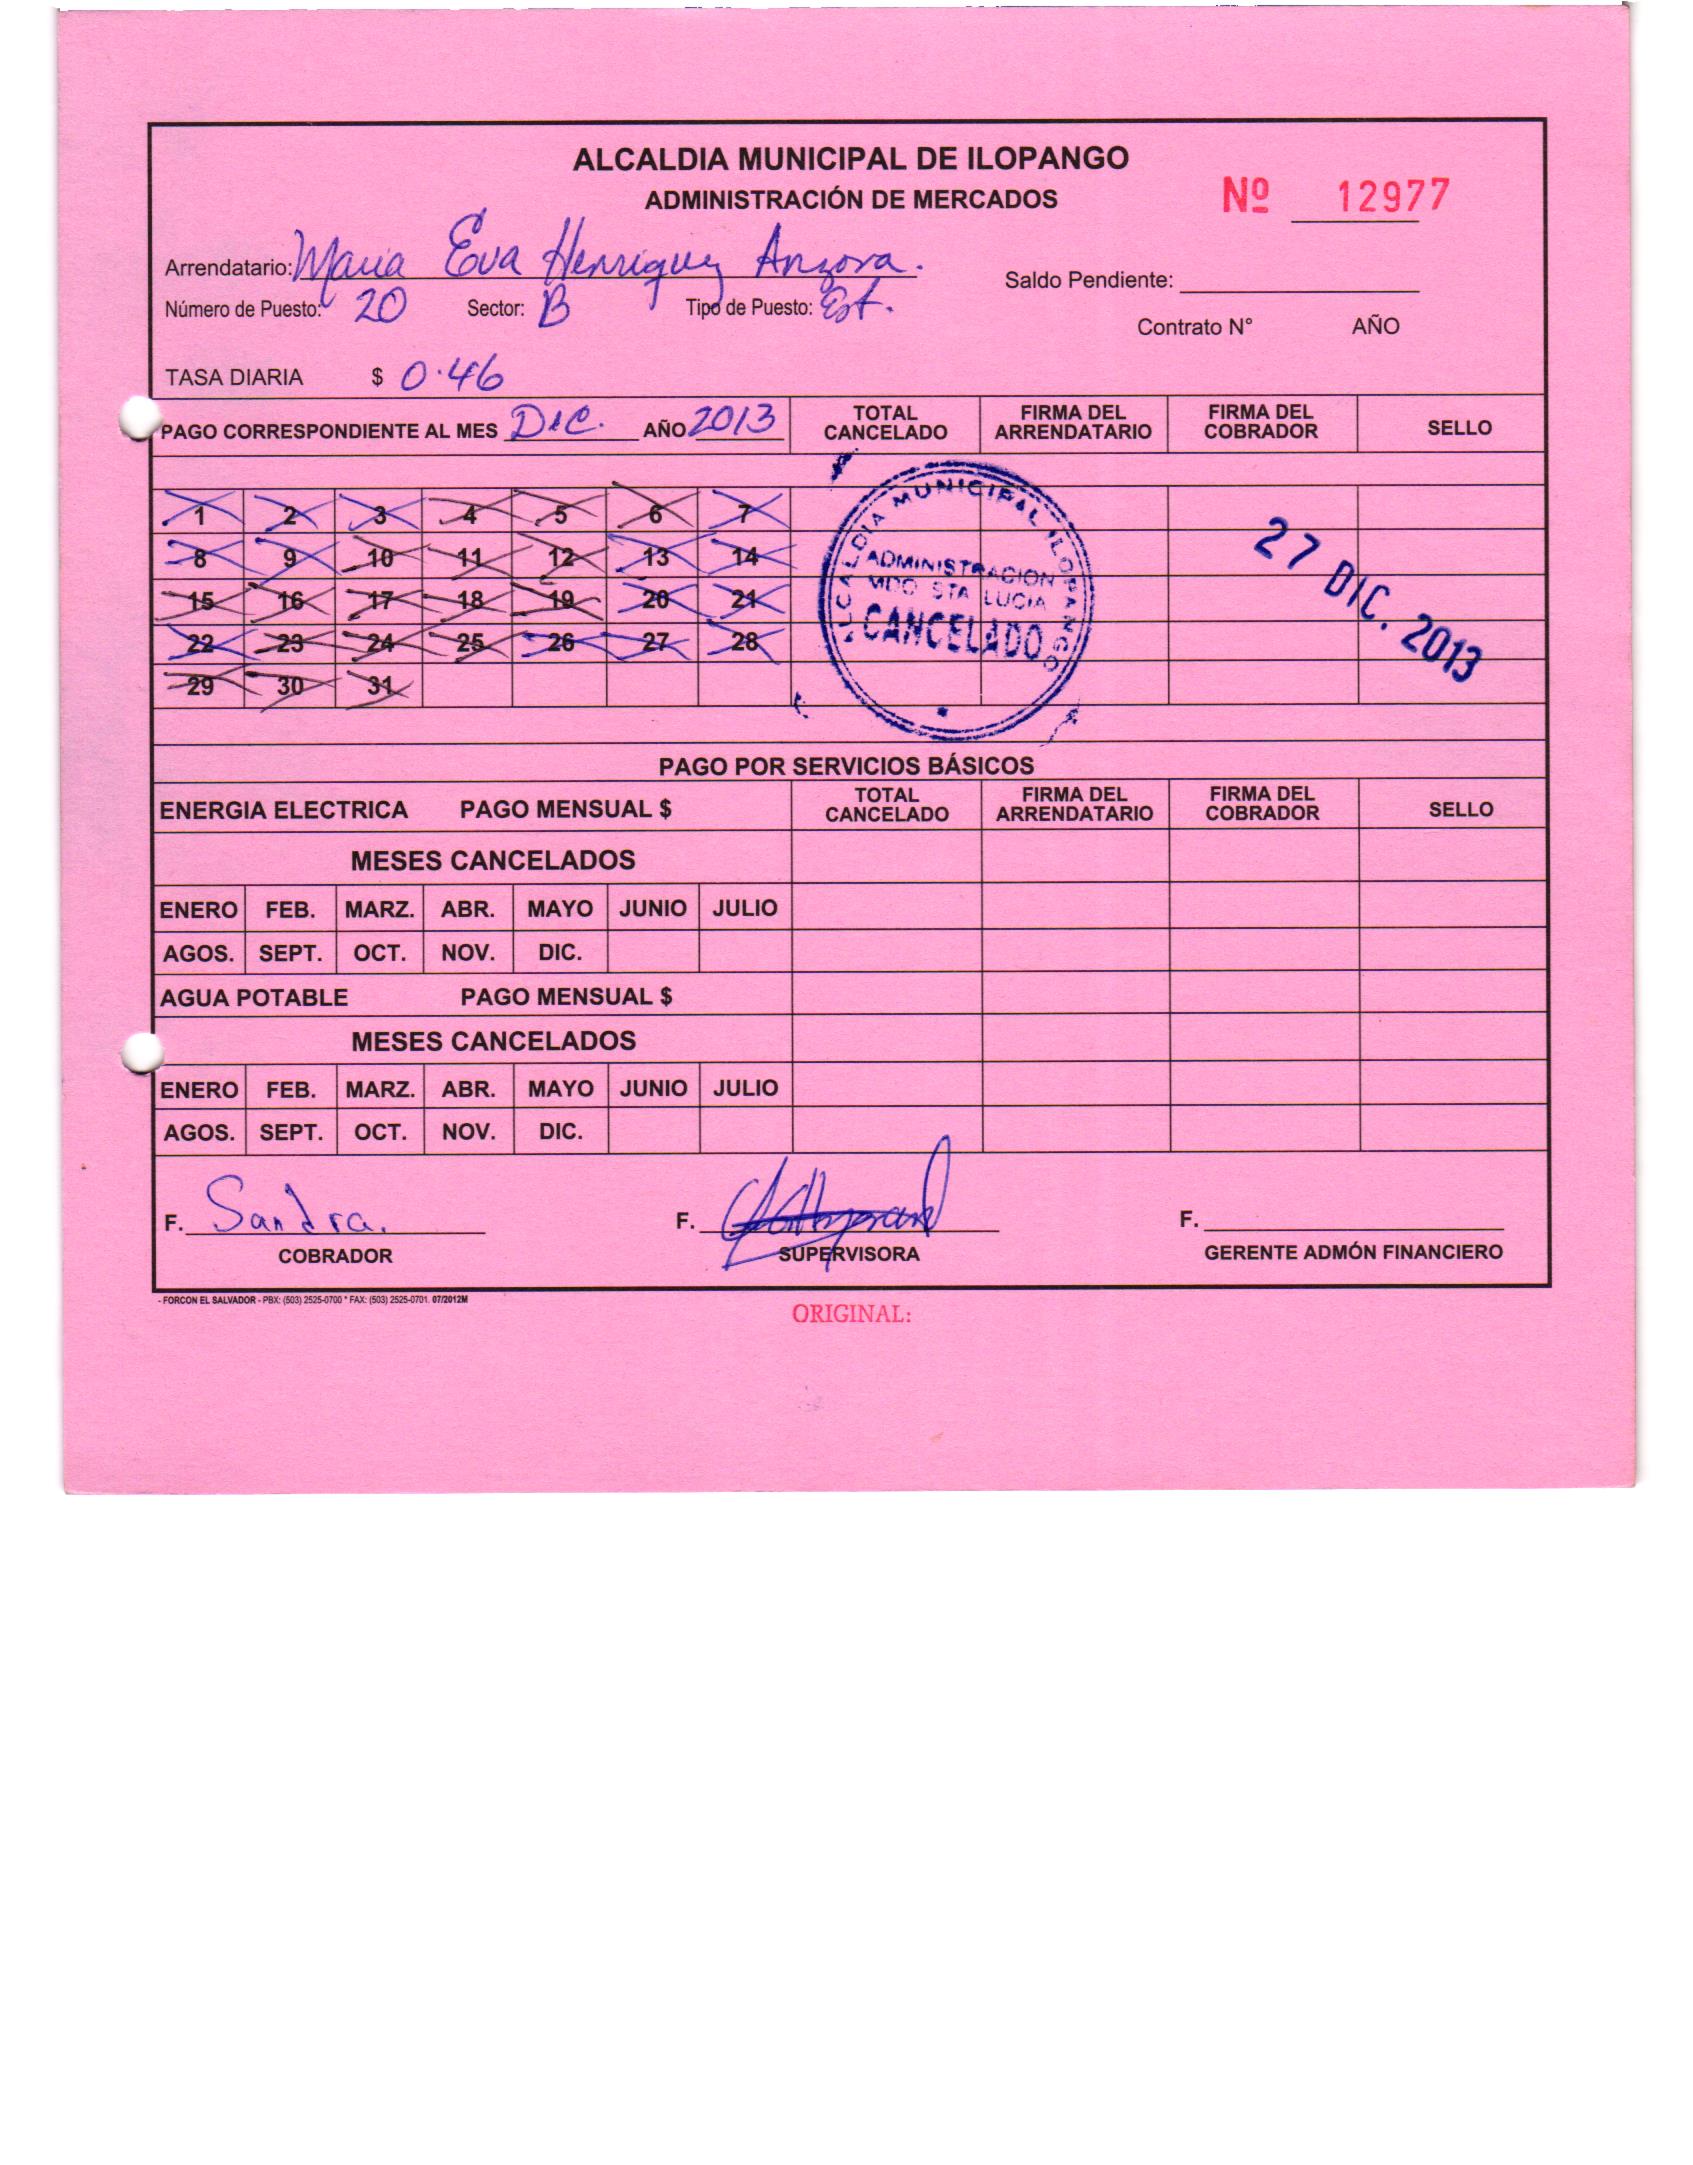 ALCALDIA MUNICIPAL DE ILOPANGO
ADMINISTRACIÓN DE MERCADOS
Nº 12977
Arrendatario: Maria Eva Henriquez Anzora.
Saldo Pendiente:
Número de Puesto: 20 Sector: B Tipo de Puesto: Est.
Contrato N° AÑO
TASA DIARIA $ 0.46
PAGO CORRESPONDIENTE AL MES Dic. AÑO 2013
TOTAL CANCELADO FIRMA DEL ARRENDATARIO FIRMA DEL COBRADOR SELLO
1 2 3 4 5 6 7
8 9 10 11 12 13 14
15 16 17 18 19 20 21
22 23 24 25 26 27 28
29 30 31
ALCALDIA MUNICIPAL ILOPANGO
ADMINISTRACION
MDO STA LUCIA
CANCELADO
27 DIC. 2013
PAGO POR SERVICIOS BÁSICOS
ENERGIA ELECTRICA PAGO MENSUAL $
TOTAL CANCELADO FIRMA DEL ARRENDATARIO FIRMA DEL COBRADOR SELLO
MESES CANCELADOS
ENERO FEB. MARZ. ABR. MAYO JUNIO JULIO
AGOS. SEPT. OCT. NOV. DIC.
AGUA POTABLE PAGO MENSUAL $
MESES CANCELADOS
ENERO FEB. MARZ. ABR. MAYO JUNIO JULIO
AGOS. SEPT. OCT. NOV. DIC.
F. Sandra. F. F.
COBRADOR SUPERVISORA GERENTE ADMÓN FINANCIERO
- FORCON EL SALVADOR - PBX: (503) 2525-0700 * FAX: (503) 2525-0701. 07/2012M
ORIGINAL: